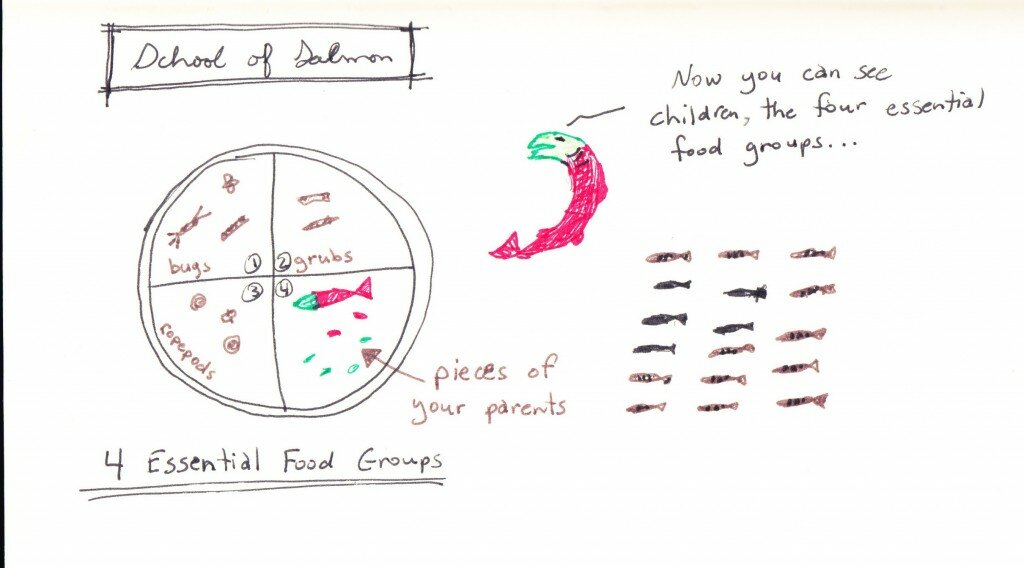 School of Salmon
Now you can see
children, the four essential
food groups...
bugs ① ② grubs
③ ④
copepods
pieces of
your parents
4 Essential Food Groups